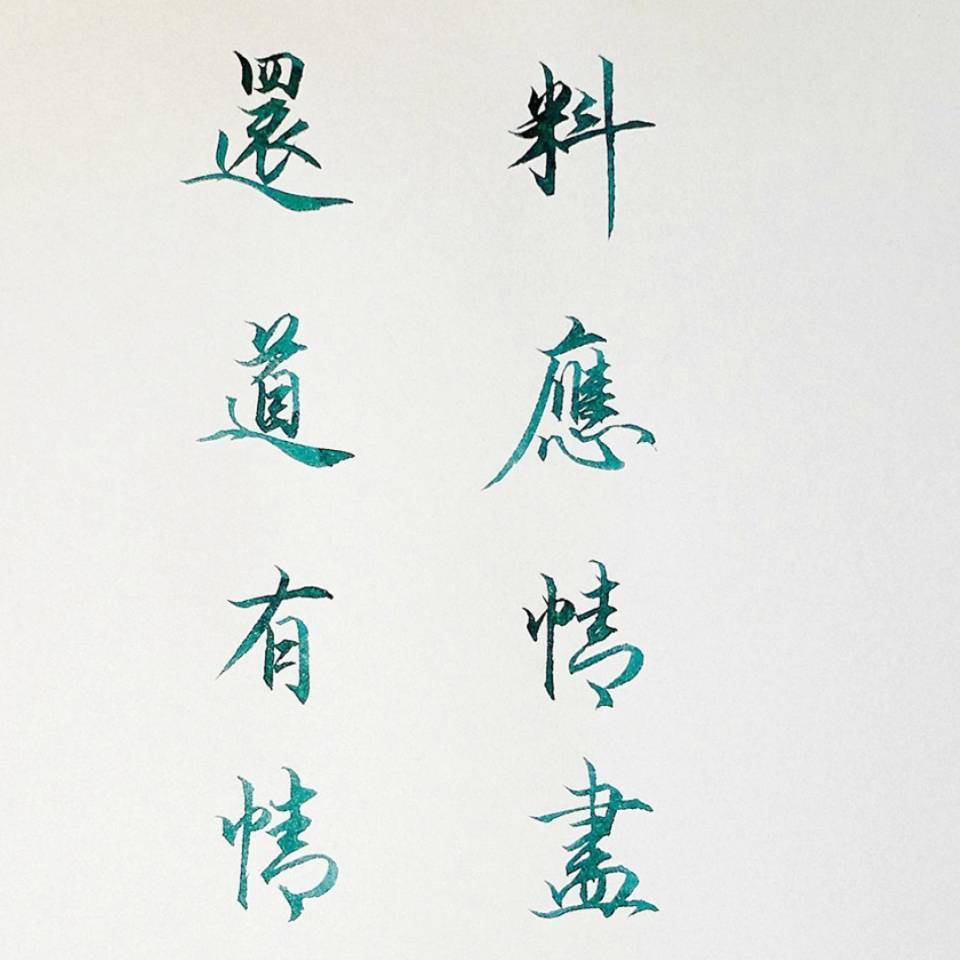 料應情盡
還道有情